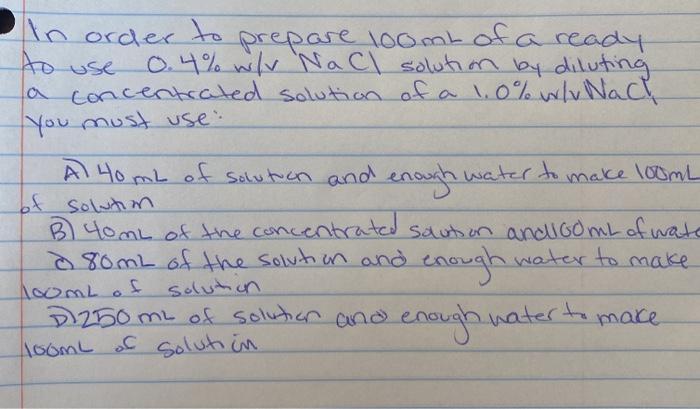 In order to prepare 100mL of a ready
to use 0.4% w/v NaCl solution by diluting
a concentrated solution of a 1.0% w/v NaCl,
you must use:
A) 40 mL of solution and enough water to make 100mL
of solution
B) 40mL of the concentrated solution and 160mL of wate
C) 80mL of the solution and enough water to make
100mL of solution
D) 250 mL of solution and enough water to make
100mL of solution